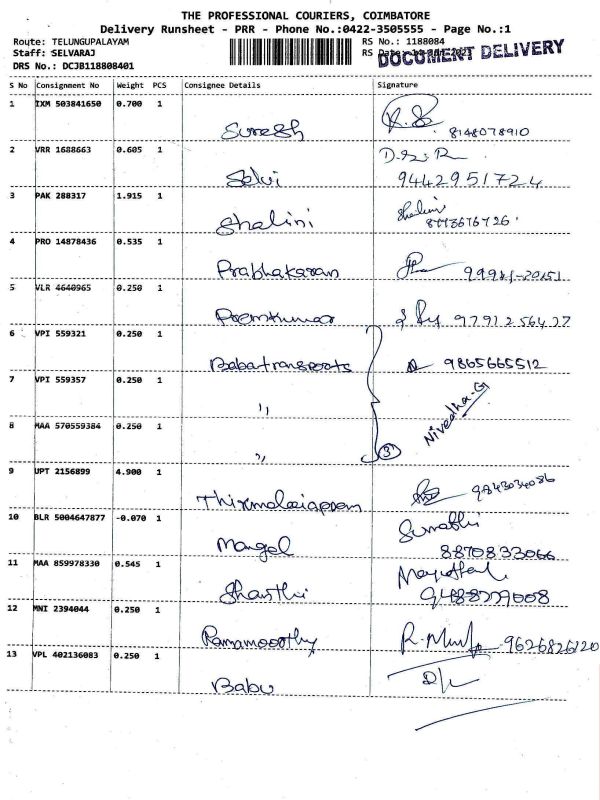 THE PROFESSIONAL COURIERS, COIMBATORE
Delivery Runsheet - PRR - Phone No.:0422-3505555 - Page No.:1
Route: TELUNGUPALAYAM RS No.: 1188084
Staff: SELVARAJ RS Date: DOCUMENT DELIVERY
DRS No.: DCJB118808401
S No Consignment No Weight PCS Consignee Details Signature
1 IXM 503841650 0.700 1
Suresh 8148078910
2 VRR 1688663 0.605 1
Selvi 9442951724
3 PAK 288317 1.915 1
Shalini Shalini
4 PRO 14878436 0.535 1
Prabhakaran
5 VLR 4640965 0.250 1
Premkumar 9791256427
6 VPI 559321 0.250 1
Babatransports 9865665512
7 VPI 559357 0.250 1
" Nivedha.G
8 MAA 570559384 0.250 1
" 3
9 UPT 2156899 4.900 1
Thirumalaiappan 9843034086
10 BLR 5004647877 -0.070 1 Sumathi
Mangal 8870833066
11 MAA 859978330 0.545 1
Shanthi
12 MNI 2394044 0.250 1
Ramamoorthy 9626826120
13 VPL 402136083 0.250 1
Babu D/L